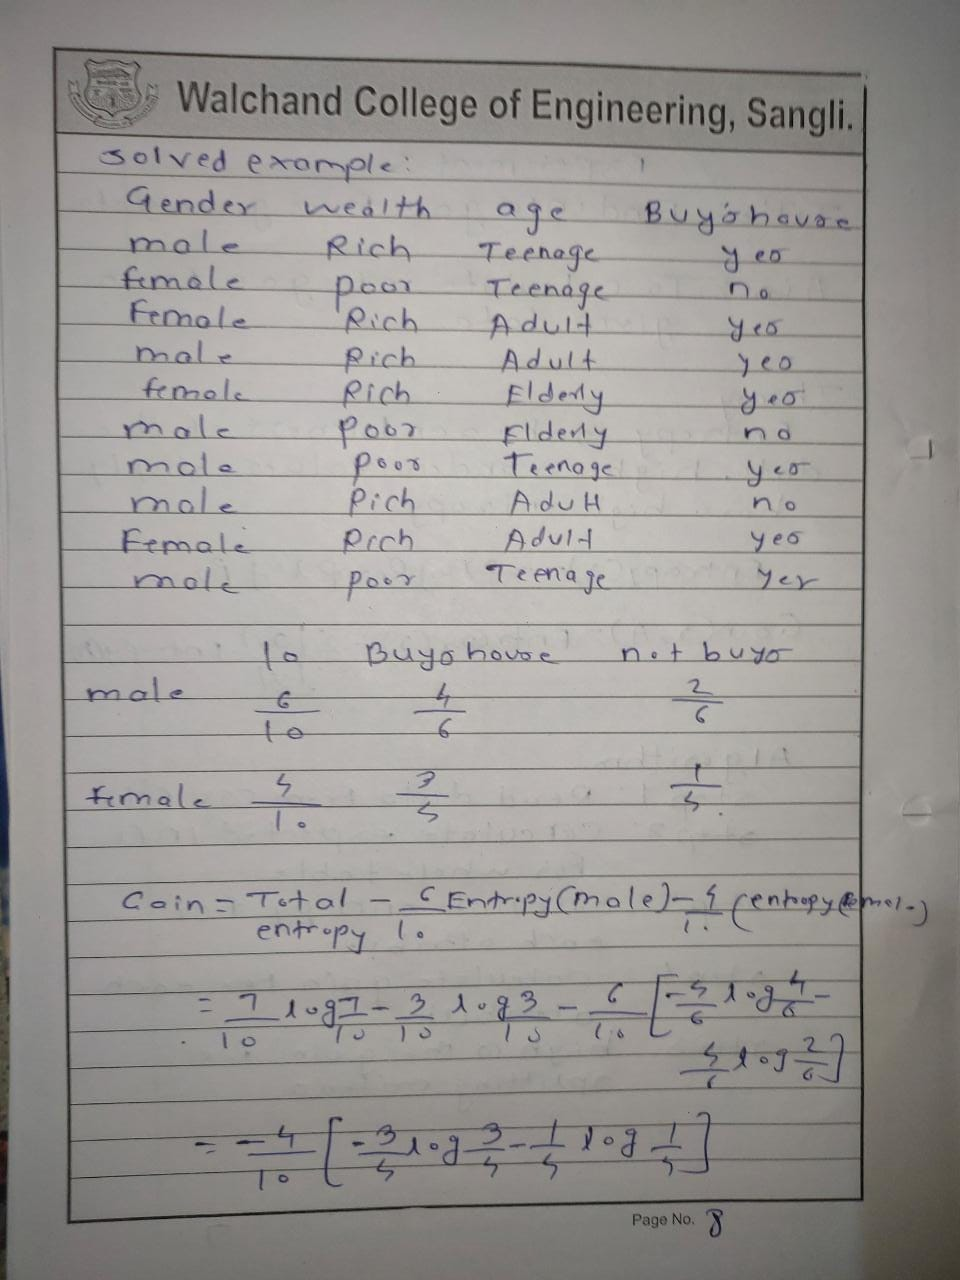 Walchand College of Engineering, Sangli.
solved example:
Gender wealth age Buys house
male Rich Teenage yes
female poor Teenage no
Female Rich Adult yes
male Rich Adult yes
female Rich Elderly yes
male poor Elderly no
male poor Teenage yes
male Rich Adult no
Female Rich Adult yes
male poor Teenage yes
10 Buys house not buys
male 6/10 4/6 2/6
female 4/10 3/4 1/4.
Gain = Total entropy - 6/10 Entropy(male) - 4/10 (entropy(female)
= 7/10 log 7/10 - 3/10 log 3/10 - 6/10 [-4/6 log 4/6 -
log 2/6]
= -4/10 [-3/4 log 3/4 - 1/4 log 1/4]
Page No. 8